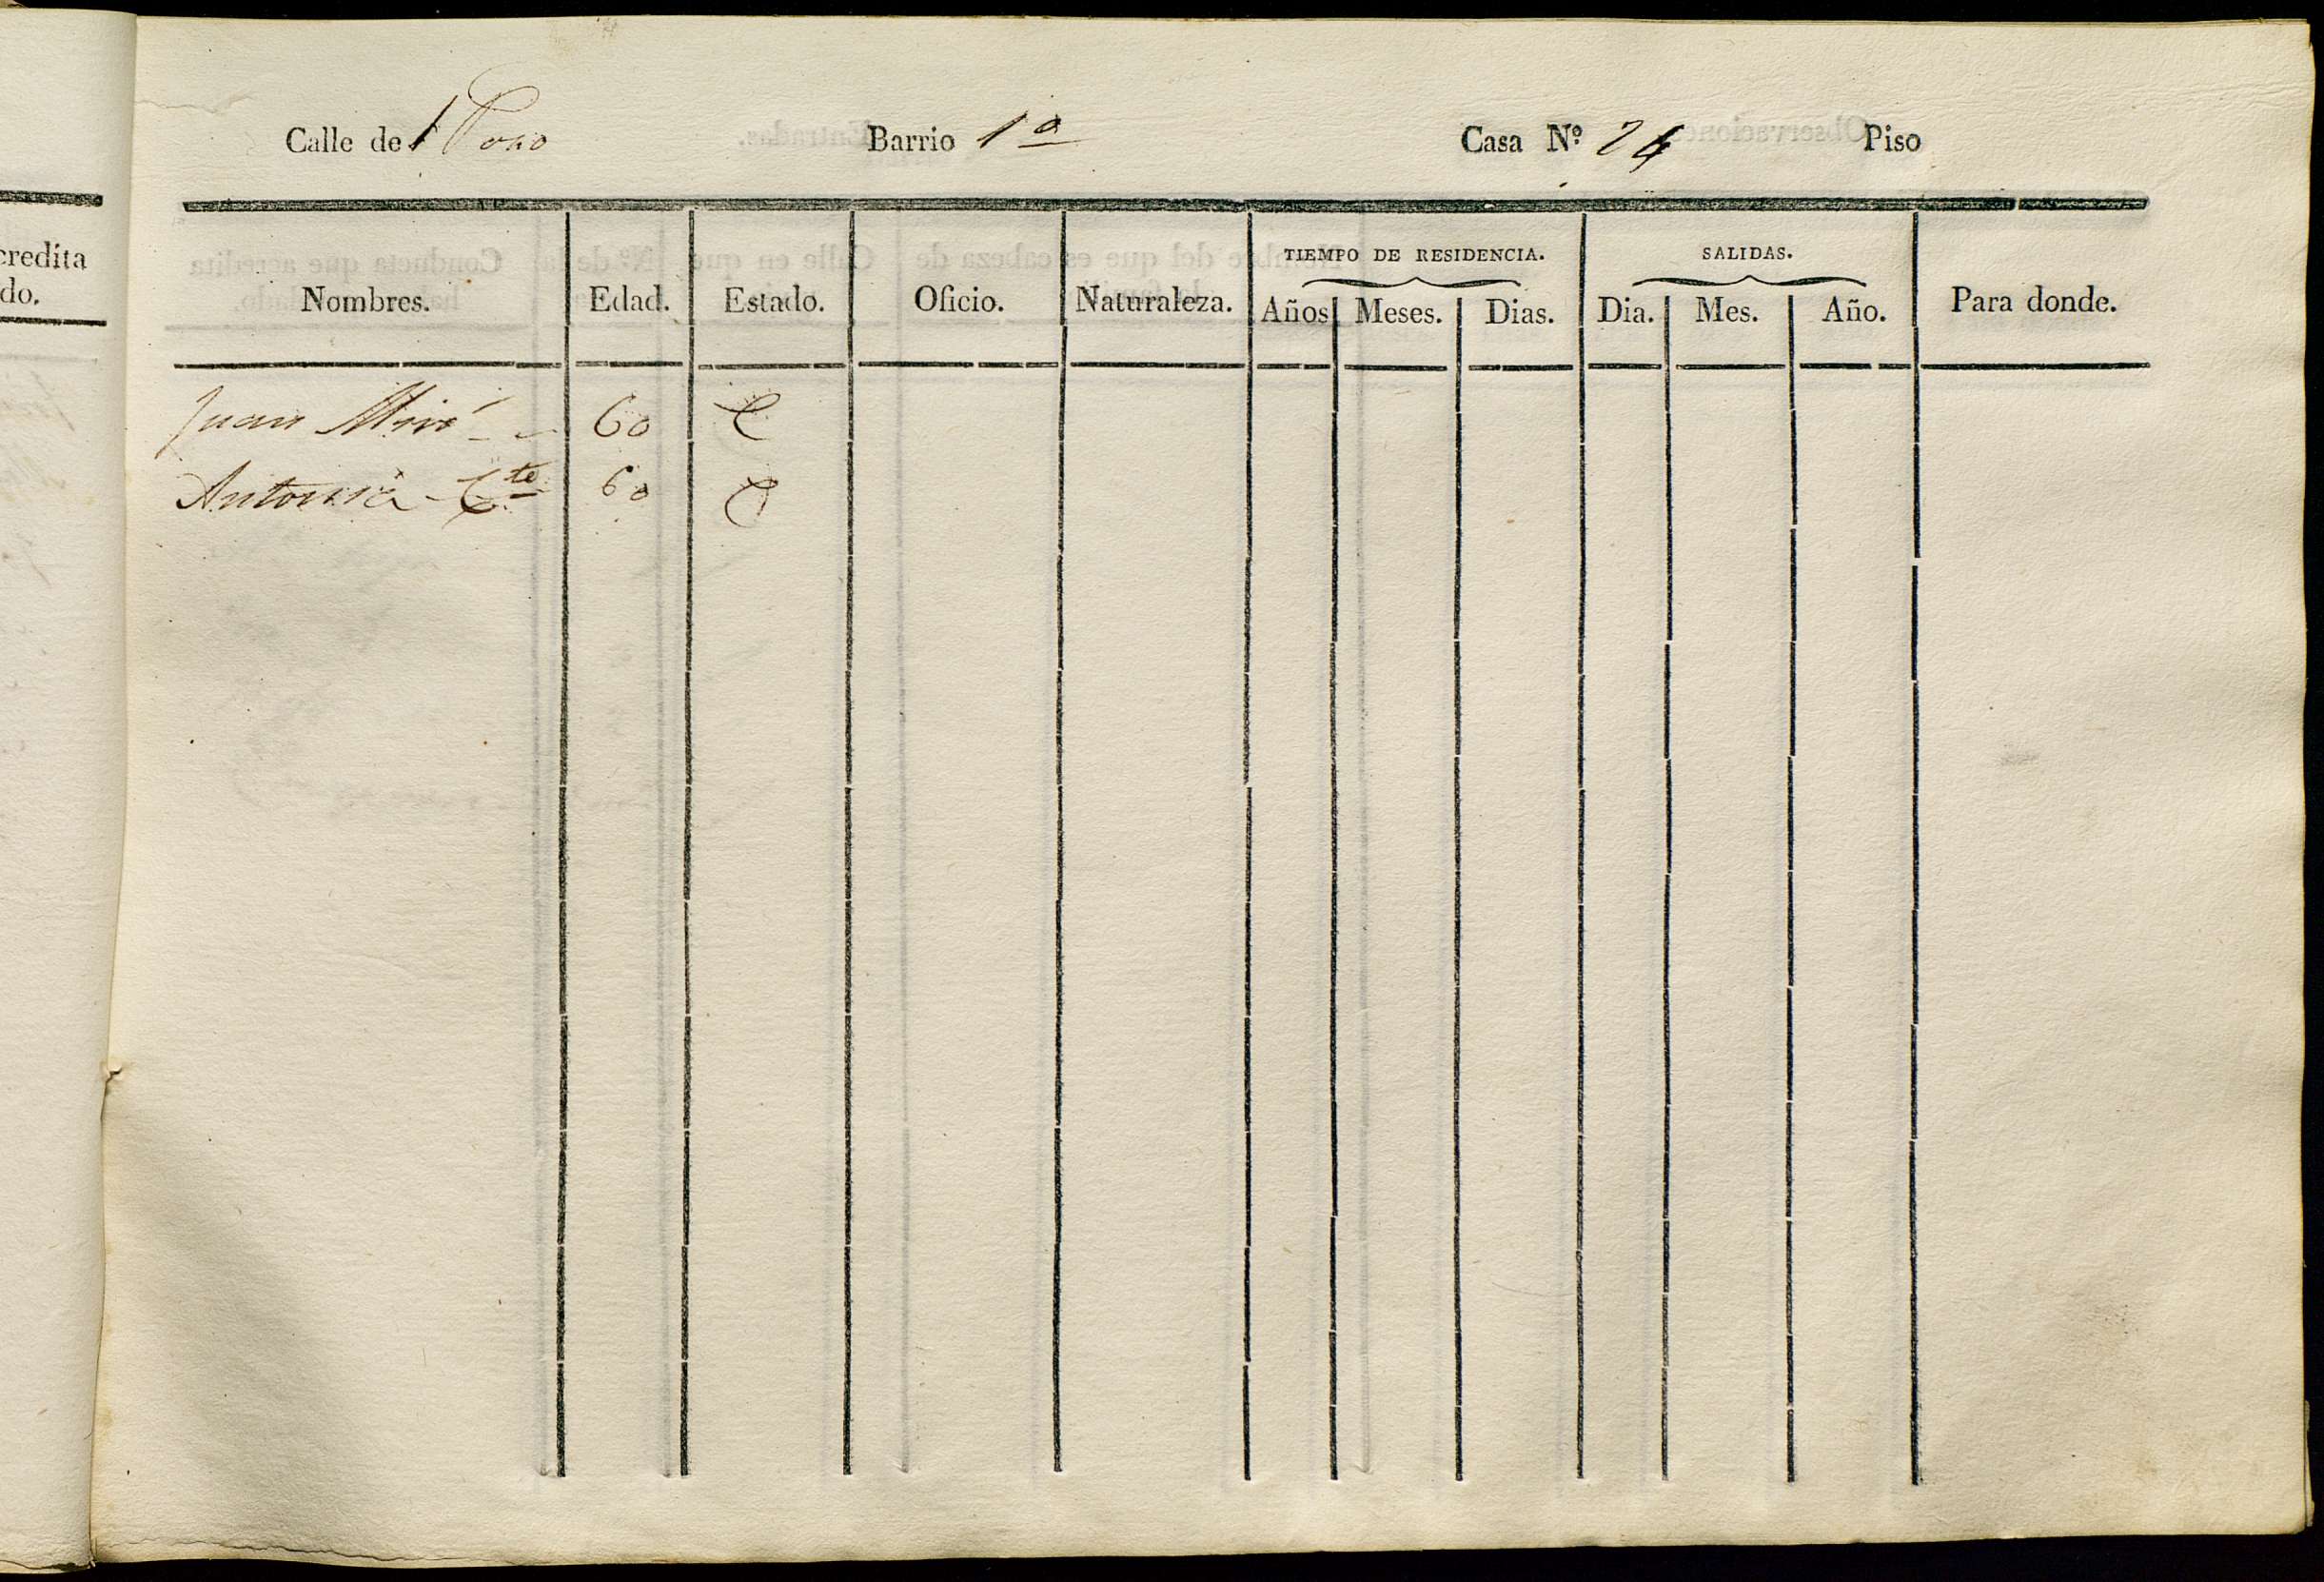 credita
do.
Calle del Poso Barrio 1ª Casa Nº 24 Piso
TIEMPO DE RESIDENCIA. SALIDAS.
Nombres. Edad. Estado. Oficio. Naturaleza. Años Meses. Dias. Dia. Mes. Año. Para donde.
Juan Miró 60 C
Antonia 60 C